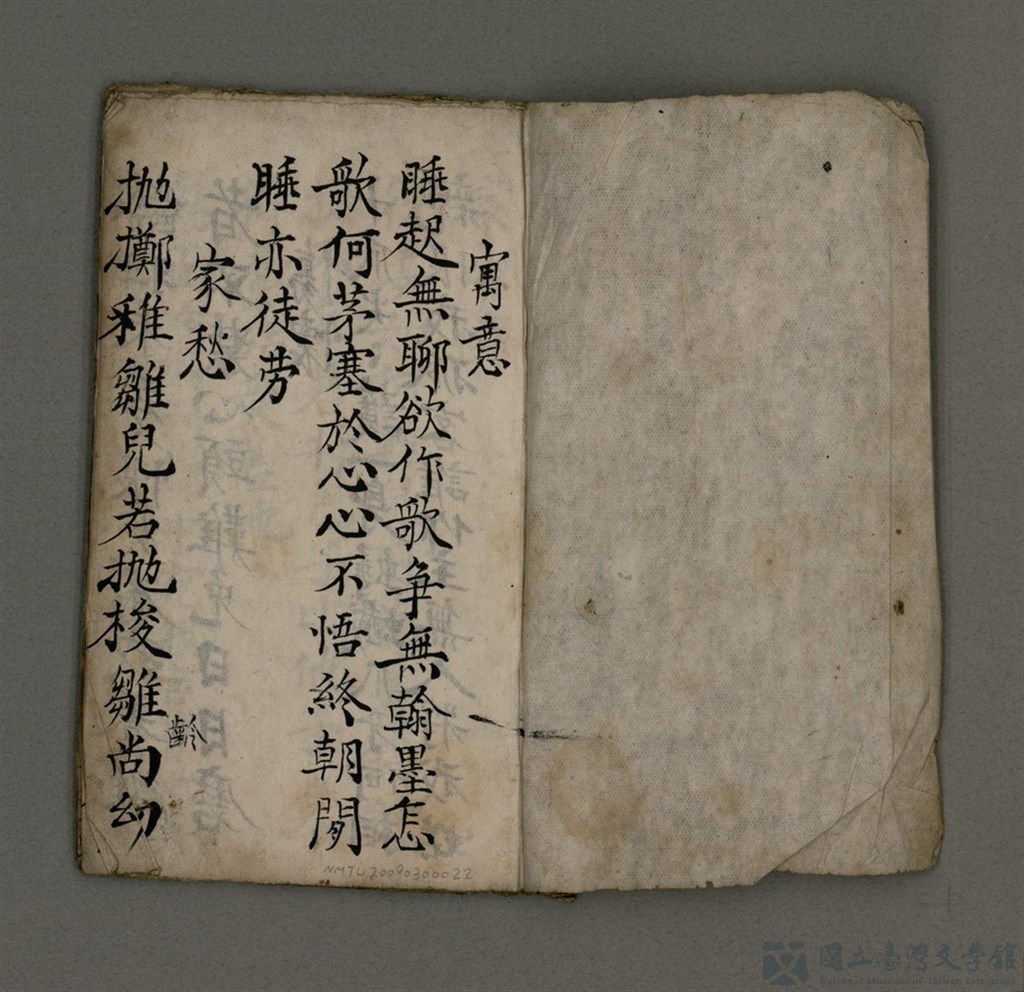 寓意
睡起無聊欲作歌爭無翰墨怎
歌何茅塞於心心不悟終朝閒
睡亦徒劳
家愁
拋擲稚雛兒若拋梭雛尚幼
齡
NMTL20090300022
國立臺灣文學館
National Museum of Taiwan Literature